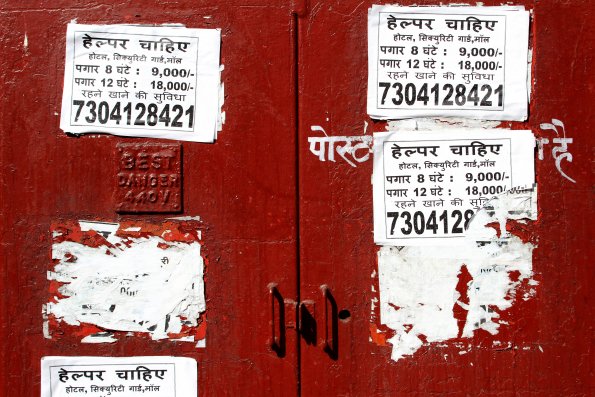 हेल्पर चाहिए
होटल, सिक्युरिटी गार्ड,मॉल
पगार 8 घंटे : 9,000/-
पगार 12 घंटे : 18,000/-
रहने खाने की सुविधा
7304128421
BEST
DANGER
440V.
री
हेल्पर चाहिए
होटल, सिक्युरिटी गार्ड,मॉल
हेल्पर चाहिए
होटल, सिक्युरिटी गार्ड,मॉल
पगार 8 घंटे : 9,000/-
पगार 12 घंटे : 18,000/-
रहने खाने की सुविधा
7304128421
पोस्ट है
हेल्पर चाहिए
होटल, सिक्युरिटी गार्ड,मॉल
पगार 8 घंटे : 9,000/-
पगार 12 घंटे : 18,000/-
रहने खाने की
7304128